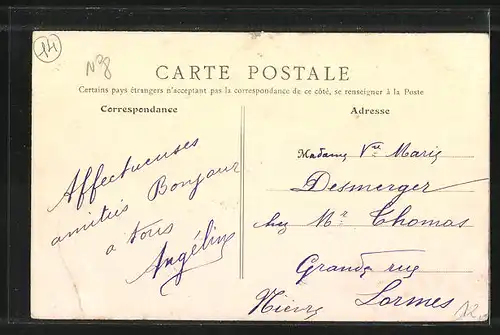 14
N° 8
CARTE POSTALE
Certains pays étrangers n'acceptant pas la correspondance de ce côté, se renseigner à la Poste
Correspondance
Adresse
Affectueuses
amitiés Bonjour
a tous
Angélina
Madame Vve Marie
Desmerger
chez Mr. Thomas
Grande rue
Lormes
Nièvre
12